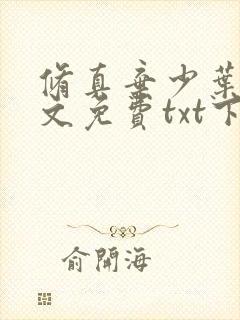 脩真弃少葉
文免費txt下
俞開海